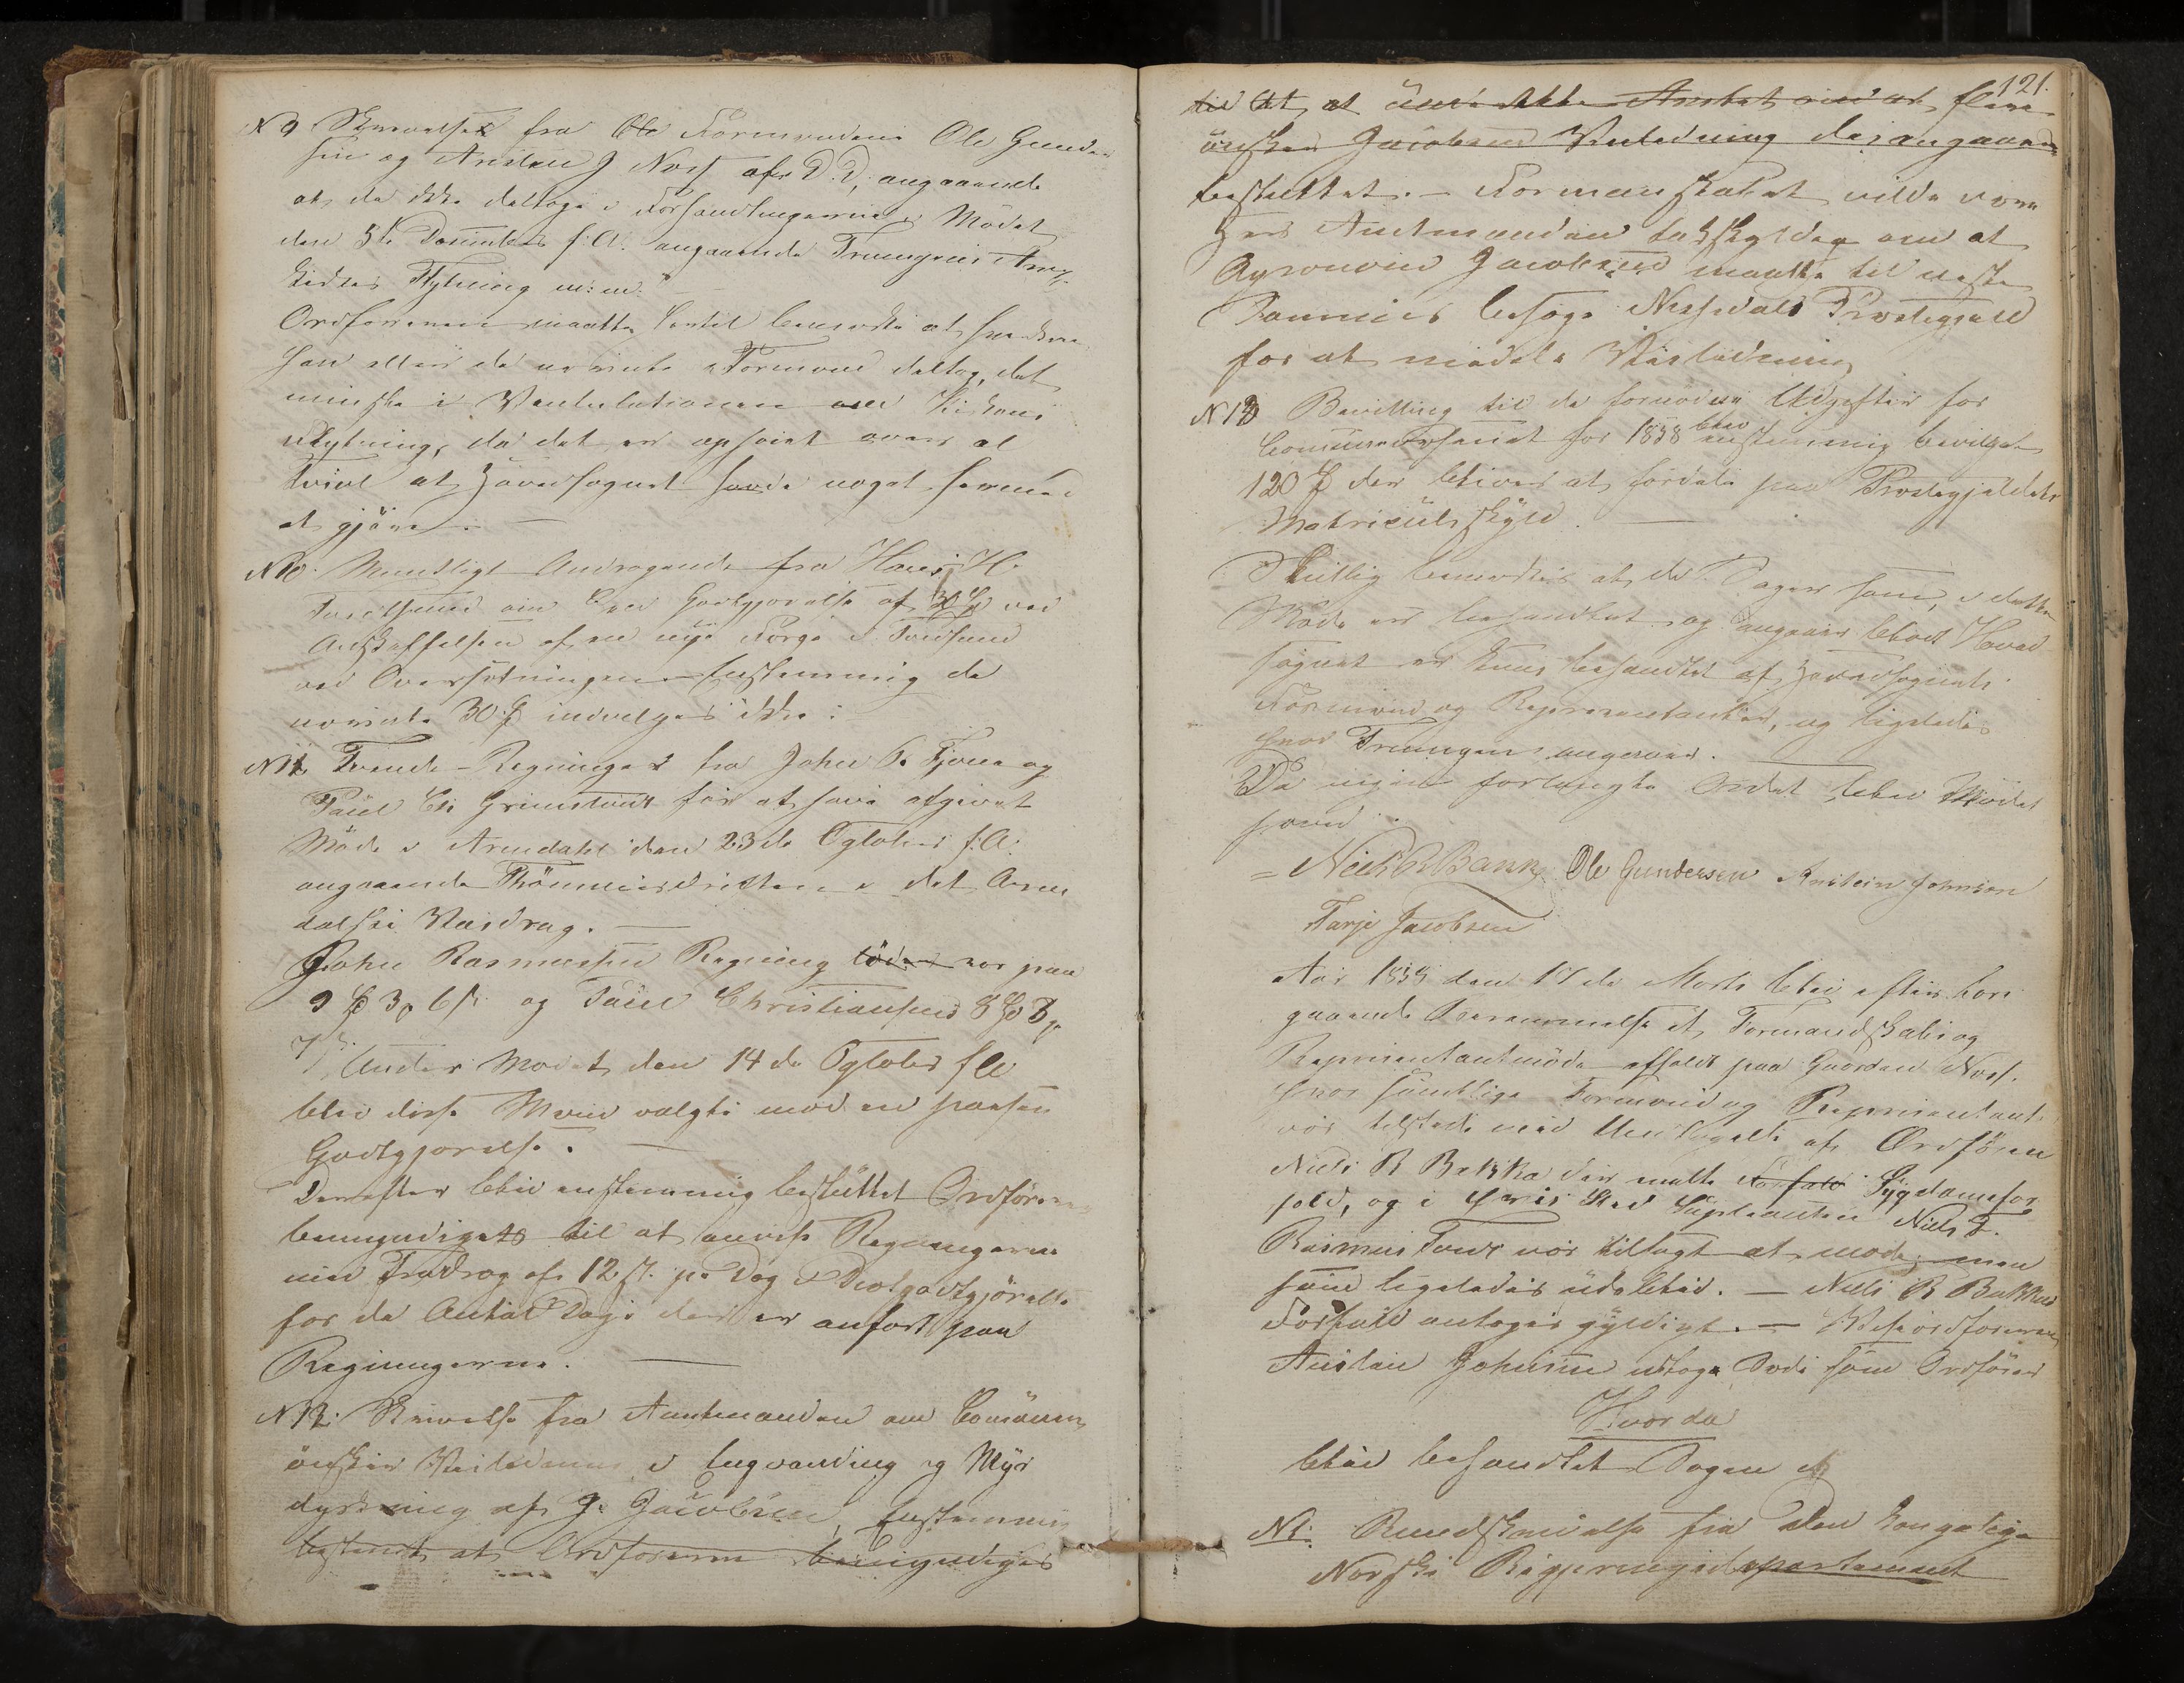 N 9 Skrivelse fra Ole Formændene Ole Gunder
sen og Anstein J Næs af D. D, angaaende
at de ikke deltoge i Forhandlingerne i Mødet
den 5te December f. A. angaaende Treungens
Kirkes Flytning m: m:
Ordføreren maatte hertil bemærke at hverken
han eller de nævnte Formænd deltog, det
mindste i Ventilationen over Kirkens
Flytning, da det er ophøiet over al
tvivl at Hovedsognet havde noget hermed
at gjøre. —
N 10. Mundligt Andragende fra Hans H.
Tveitsund om en Godtgjørelse af 30 ₰ ved
Anskaffelsen af en nye Færge i Tveitsund
ved Oversætningen. Enstemmig de
nævnte 30 ₰ indvilges ikke:
N 11 Tvende Regninger fra John R. Fjone og
Paul Chr Grimstveit for at have afgivet
Møde i Arendahl den 23de Octobr f: A:
angaaende Tømmerdriften i det Aren
dalske Vasdrag. —
John Rasmussen Regning löder var paa
9 ₰ 3 ₰ 6 s. og Paul Christiansens 8 ₰ 3 ₰
7 s. Under Mødet den 14de Octobr f A
blev disse Mænd valgte mod en passende
Godtgjørelse. —
Derefter blev enstemmig besluttet Ordføreren
bemyndiget til at anvise Regningerne
med Fradrag af 12 s. pr Dag i Diætgodtgjørelse
for de Antal Dage der er anført paa
Regningerne. —
N 12. Skrivelse fra Amtmanden om Comunen
ønsker Veiledning i Engvanding og Myr
dyrkning af J. Jacobsen, Enstemmig
bestemt at Ordføreren bemyndiges
121.
til at, at flere
ønsker Jacobsens Veiledning desangaaende
besluttet. — Formandskabet vilde være
Hr Amtmanden takskyldig om at
Agronom Jacobsen maatte til neste
Sommer besøge Nissedals Præstegjeld
for at meddele Veiledning
N 13 Bevilling til de fornødne Udgifter for
Comunevæsenet for 1858 blev enstemmig bevilget
120 ₰ der bliver at fordele paa Præstegjældets
Matriculskyld. —
Skutlig bemærkes at de Sager som i dette
Møde er behandlet og angaar blodt Hoved
sognet er kun behandlet af Hovedsognets
Formænd og Representanter, og ligeledes
hvor Treungen angaaer.
Da ingen forlangte Ordet blev Mødet
hævet.
Niels R Bakke Ole Gundersen Anstein Johnsen
Tarje Jacobsen
Aar 1858 den 17de Marts blev efter fore
gaaende Berammelse et Formandskabs og
Representantmøde afholdt paa Gaarden Næs.
hvor samtlige Formænd og Representant
var tilstede med Undtagelse af Ordføren
Niels R Bakka der meldte Forfald Sygdomsfor
fald, og i hvis Sted Supleanten Niels T.
Rasmus Tveit var tilsagt at møde, men
som ligeledes udeblev. — Niels R Bakkes
Forfald antages gyldigt. — Viseordføreren
Anstein Johnsen indtoge Sæde som Ordfører
Hvorda
blev behandlet Sagen
N 1. Rundskrivelse fra Den Kongelige
Norske Regjeringsdepartement